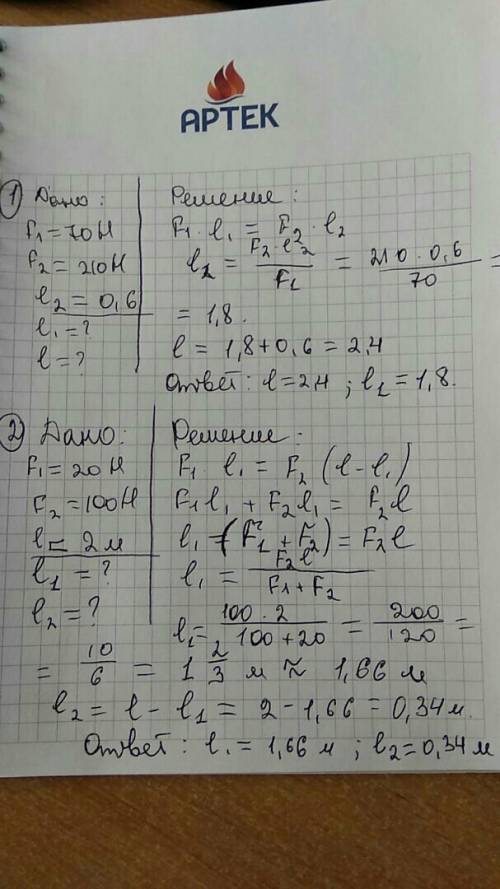 АРТЕК
1 Дано:
F1 = 70 Н
F2 = 210 Н
l2 = 0,6
l1 = ?
l = ?
Решение:
F1 · l1 = F2 · l2
l1 = F2 · l2 / F1 = 210 · 0,6 / 70 =
= 1,8.
l = 1,8 + 0,6 = 2,4
Ответ: l = 2,4 ; l1 = 1,8.
2 Дано:
F1 = 20 Н
F2 = 100 Н
l = 2 м
l1 = ?
l2 = ?
Решение:
F1 · l1 = F2 (l - l1)
F1 l1 + F2 l1 = F2 l
l1 = (F1 + F2) = F2 l
l1 = F2 l / F1 + F2
l1 = 100 · 2 / 100 + 20 = 200 / 120 =
= 10/6 = 1 2/3 м ≈ 1,66 м
l2 = l - l1 = 2 - 1,66 = 0,34 м.
Ответ: l1 = 1,66 м ; l2 = 0,34 м